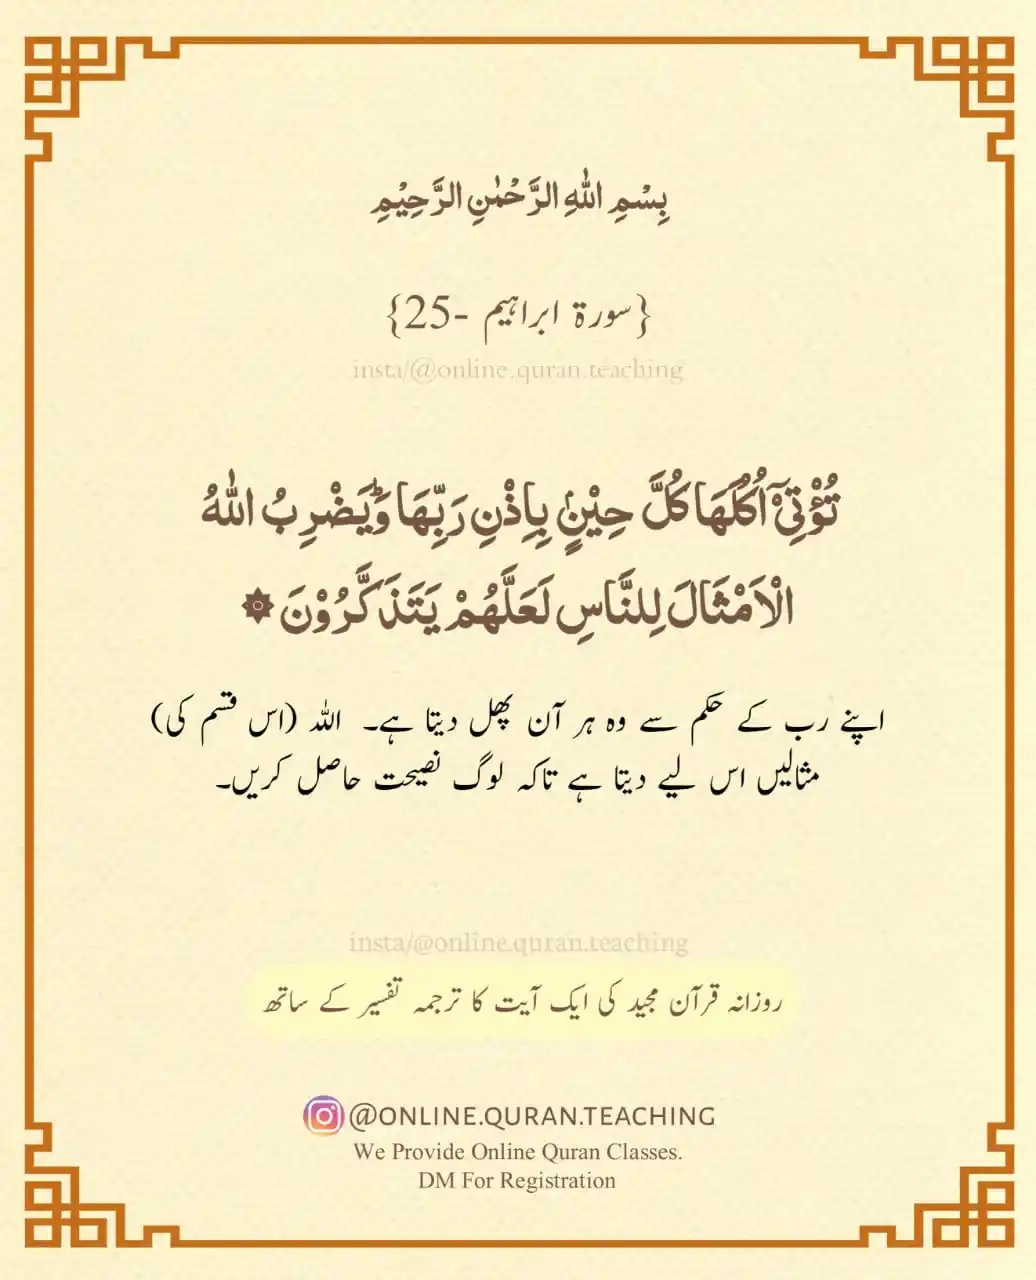 بِسْمِ اللّٰهِ الرَّحْمٰنِ الرَّحِيْمِ
{سورۃ ابراہیم -25}
insta/@online.quran.teaching
تُؤْتِيْٓ اُكُلَهَا كُلَّ حِيْنٍۢ بِاِذْنِ رَبِّهَا ؕ وَيَضْرِبُ اللّٰهُ
الْاَمْثَالَ لِلنَّاسِ لَعَلَّهُمْ يَتَذَكَّرُوْنَ ۞
اپنے رب کے حکم سے وہ ہر آن پھل دیتا ہے۔ اللہ (اس قسم کی)
مثالیں اس لیے دیتا ہے تاکہ لوگ نصیحت حاصل کریں۔
insta/@online.quran.teaching
روزانہ قرآن مجید کی ایک آیت کا ترجمہ تفسیر کے ساتھ
@ONLINE.QURAN.TEACHING
We Provide Online Quran Classes.
DM For Registration